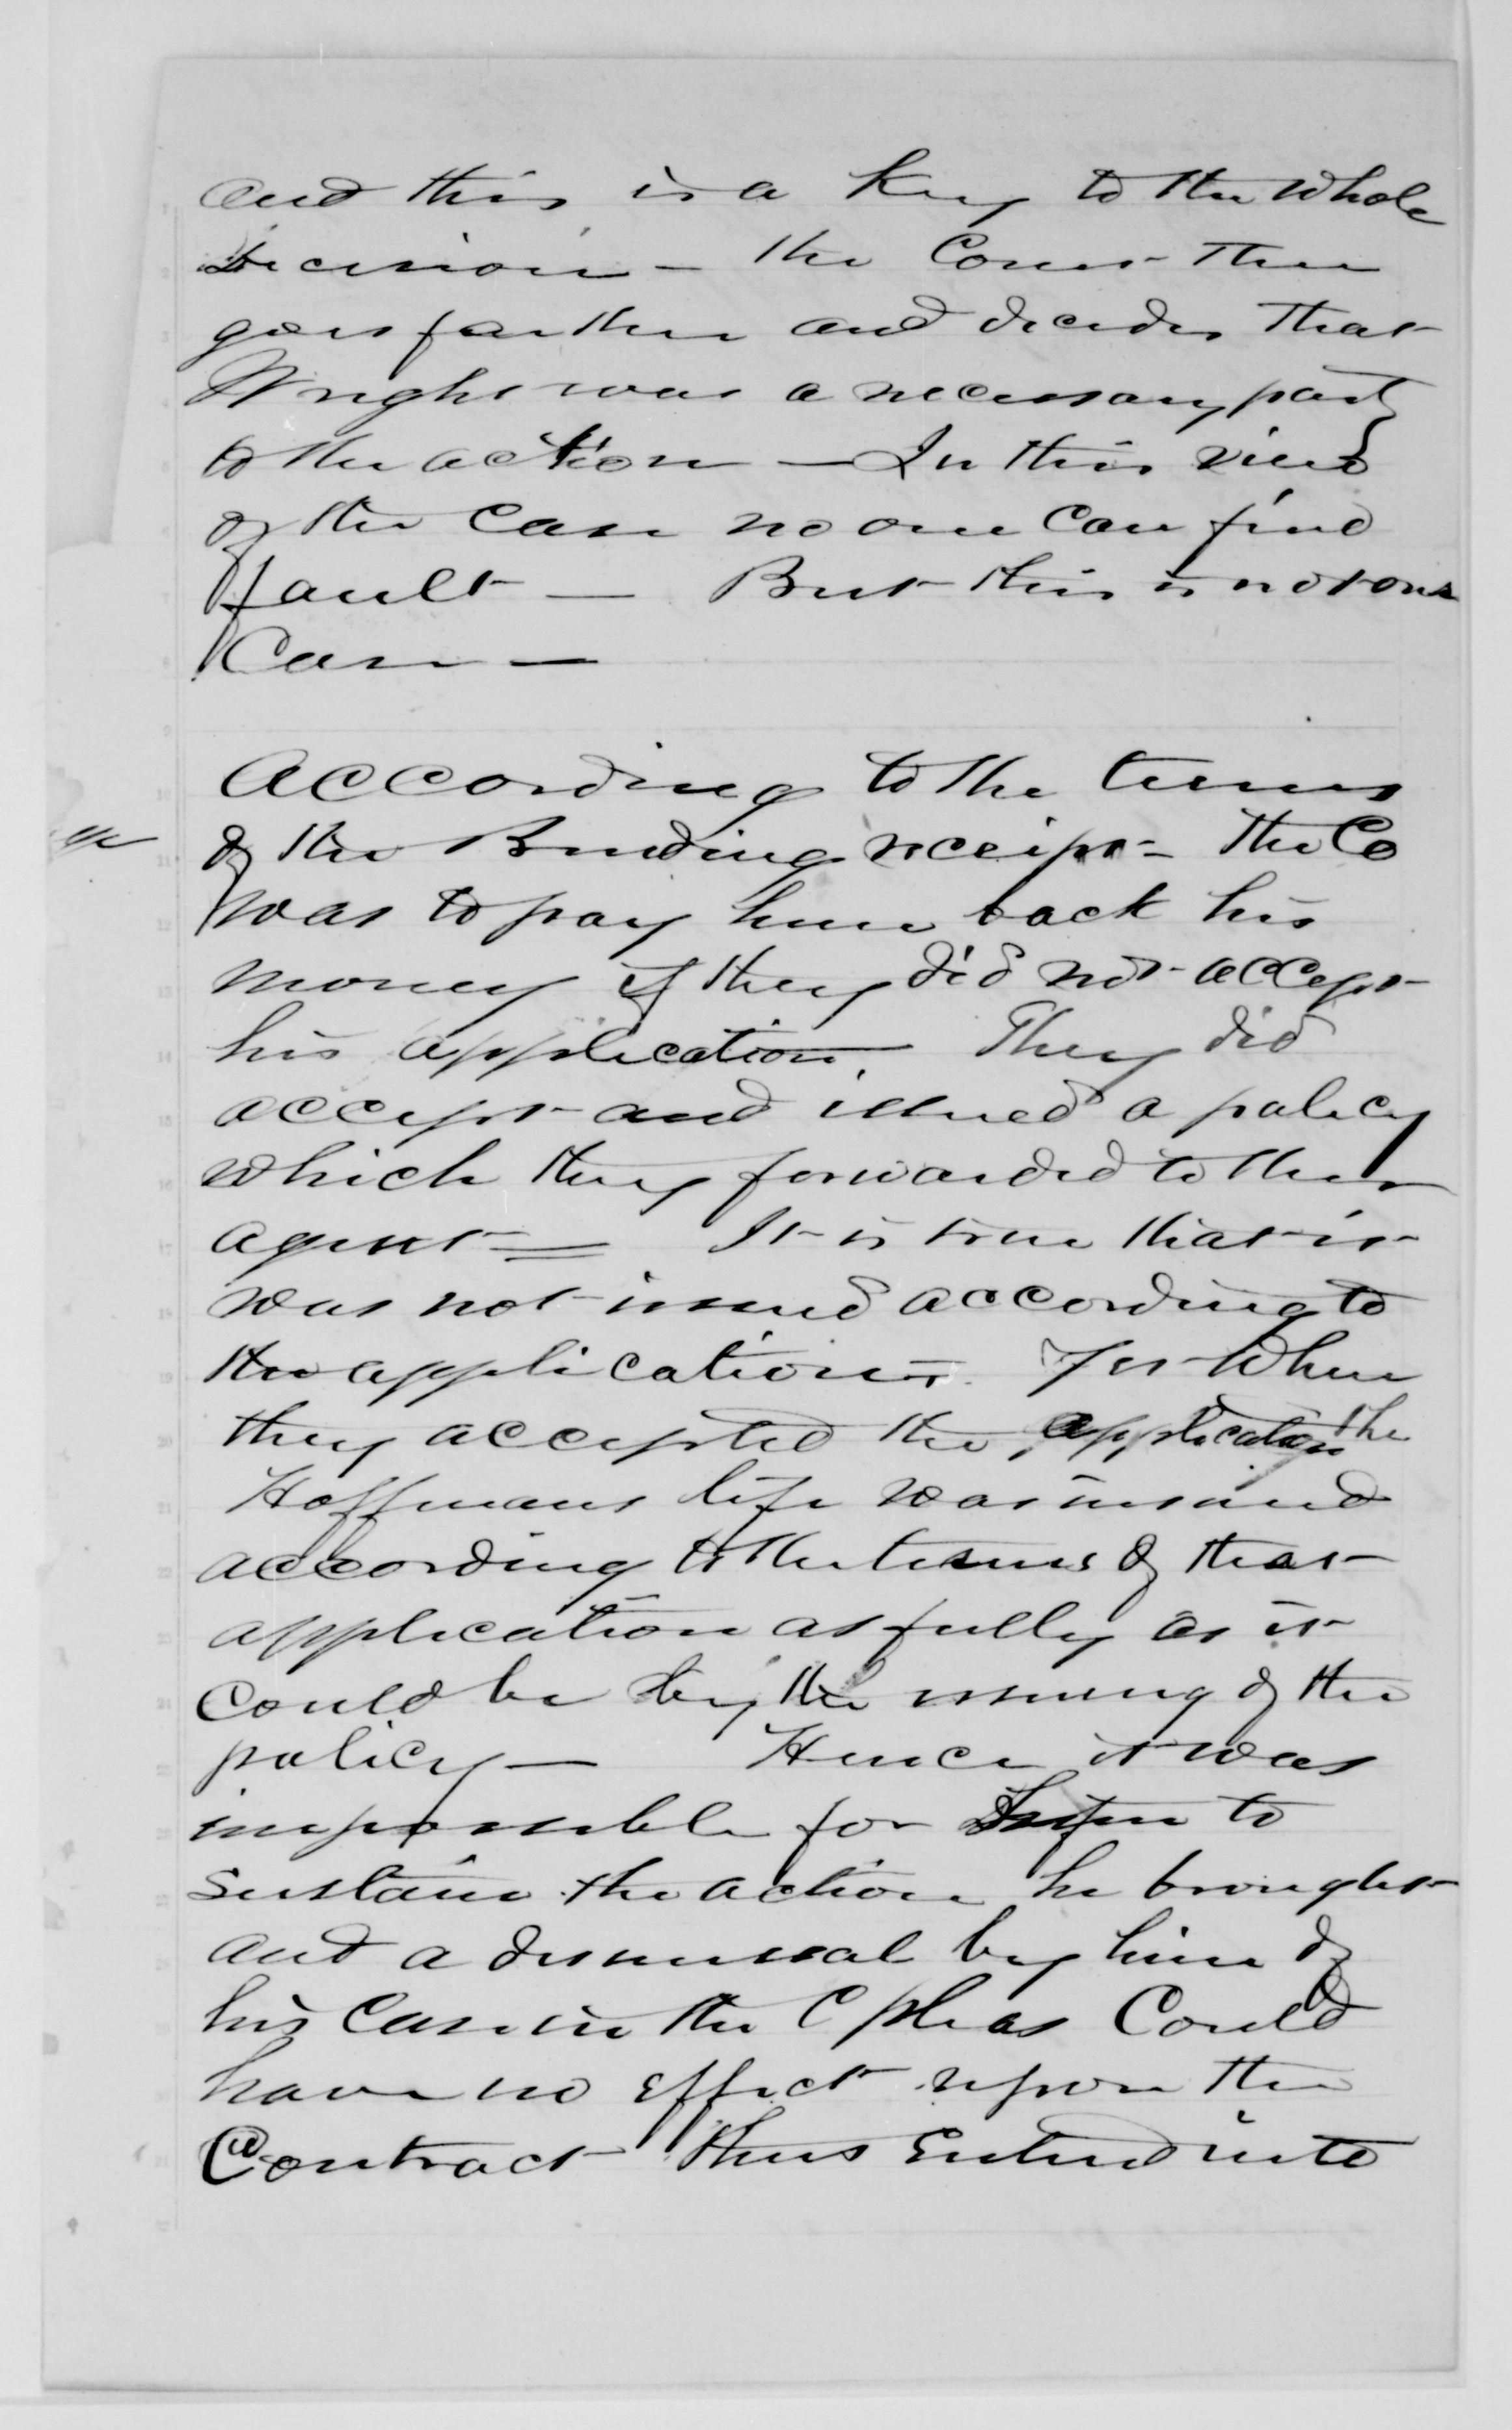 and this is a Key to the whole
decision – the Court then
goes farther and decides that
Wright was a necessary party
to the action — In this view
of the case no one can find
fault — But this is not our
Case —
According to the terms
of the Binding receipt – the Co
was to pay him back his
money if they did not accept
his application. They did
accept and issued a policy
which they forwarded to their
agent — It is true that it
was not issued according to
the application –. Yet when
they accepted the application the
Hoffmans life was insured
according to the terms of that
application as fully as it
could be by the issuing of the
policy — Hence it was
impossible for to
sustain the action he brought
and a dismissal by him of
his case in the C pleas Could
have no effect upon the
Contract thus Entered into